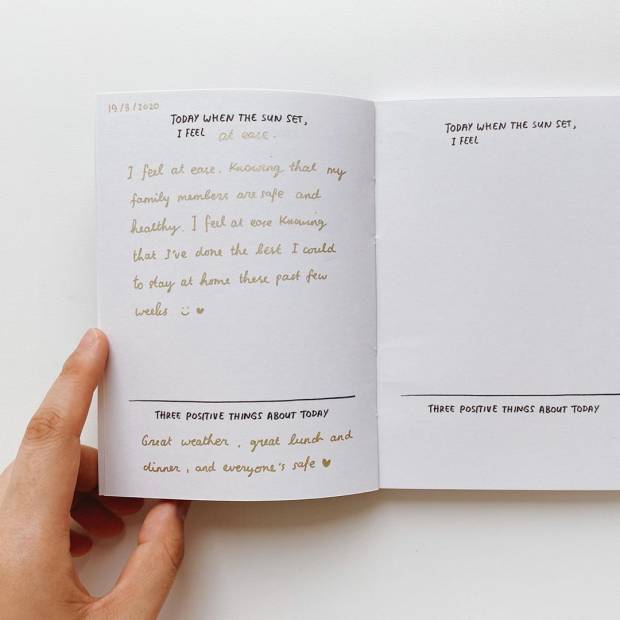 19/3/2020
TODAY WHEN THE SUN SET,
I FEEL at ease.
I feel at ease. Knowing that my
family members are safe and
healthy. I feel at ease knowing
that I've done the best I could
to stay at home these past few
weeks ☺ ♥
THREE POSITIVE THINGS ABOUT TODAY
Great weather, great lunch and
dinner, and everyone's safe ♥
TODAY WHEN THE SUN SET,
I FEEL
THREE POSITIVE THINGS ABOUT TODAY